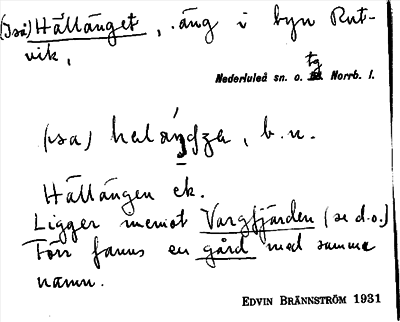 (Isa) Hällänget, äng i byn Rut-
vik,
Nederluleå sn. o. tg Norrb. l.
(ɩsa) halǻŋʒa, b.n.
Hällängen ek.
Ligger inemot Vargfjärden (se d.o.)
Förr fanns en gård med samma
namn.
EDVIN BRÄNNSTRÖM 1931